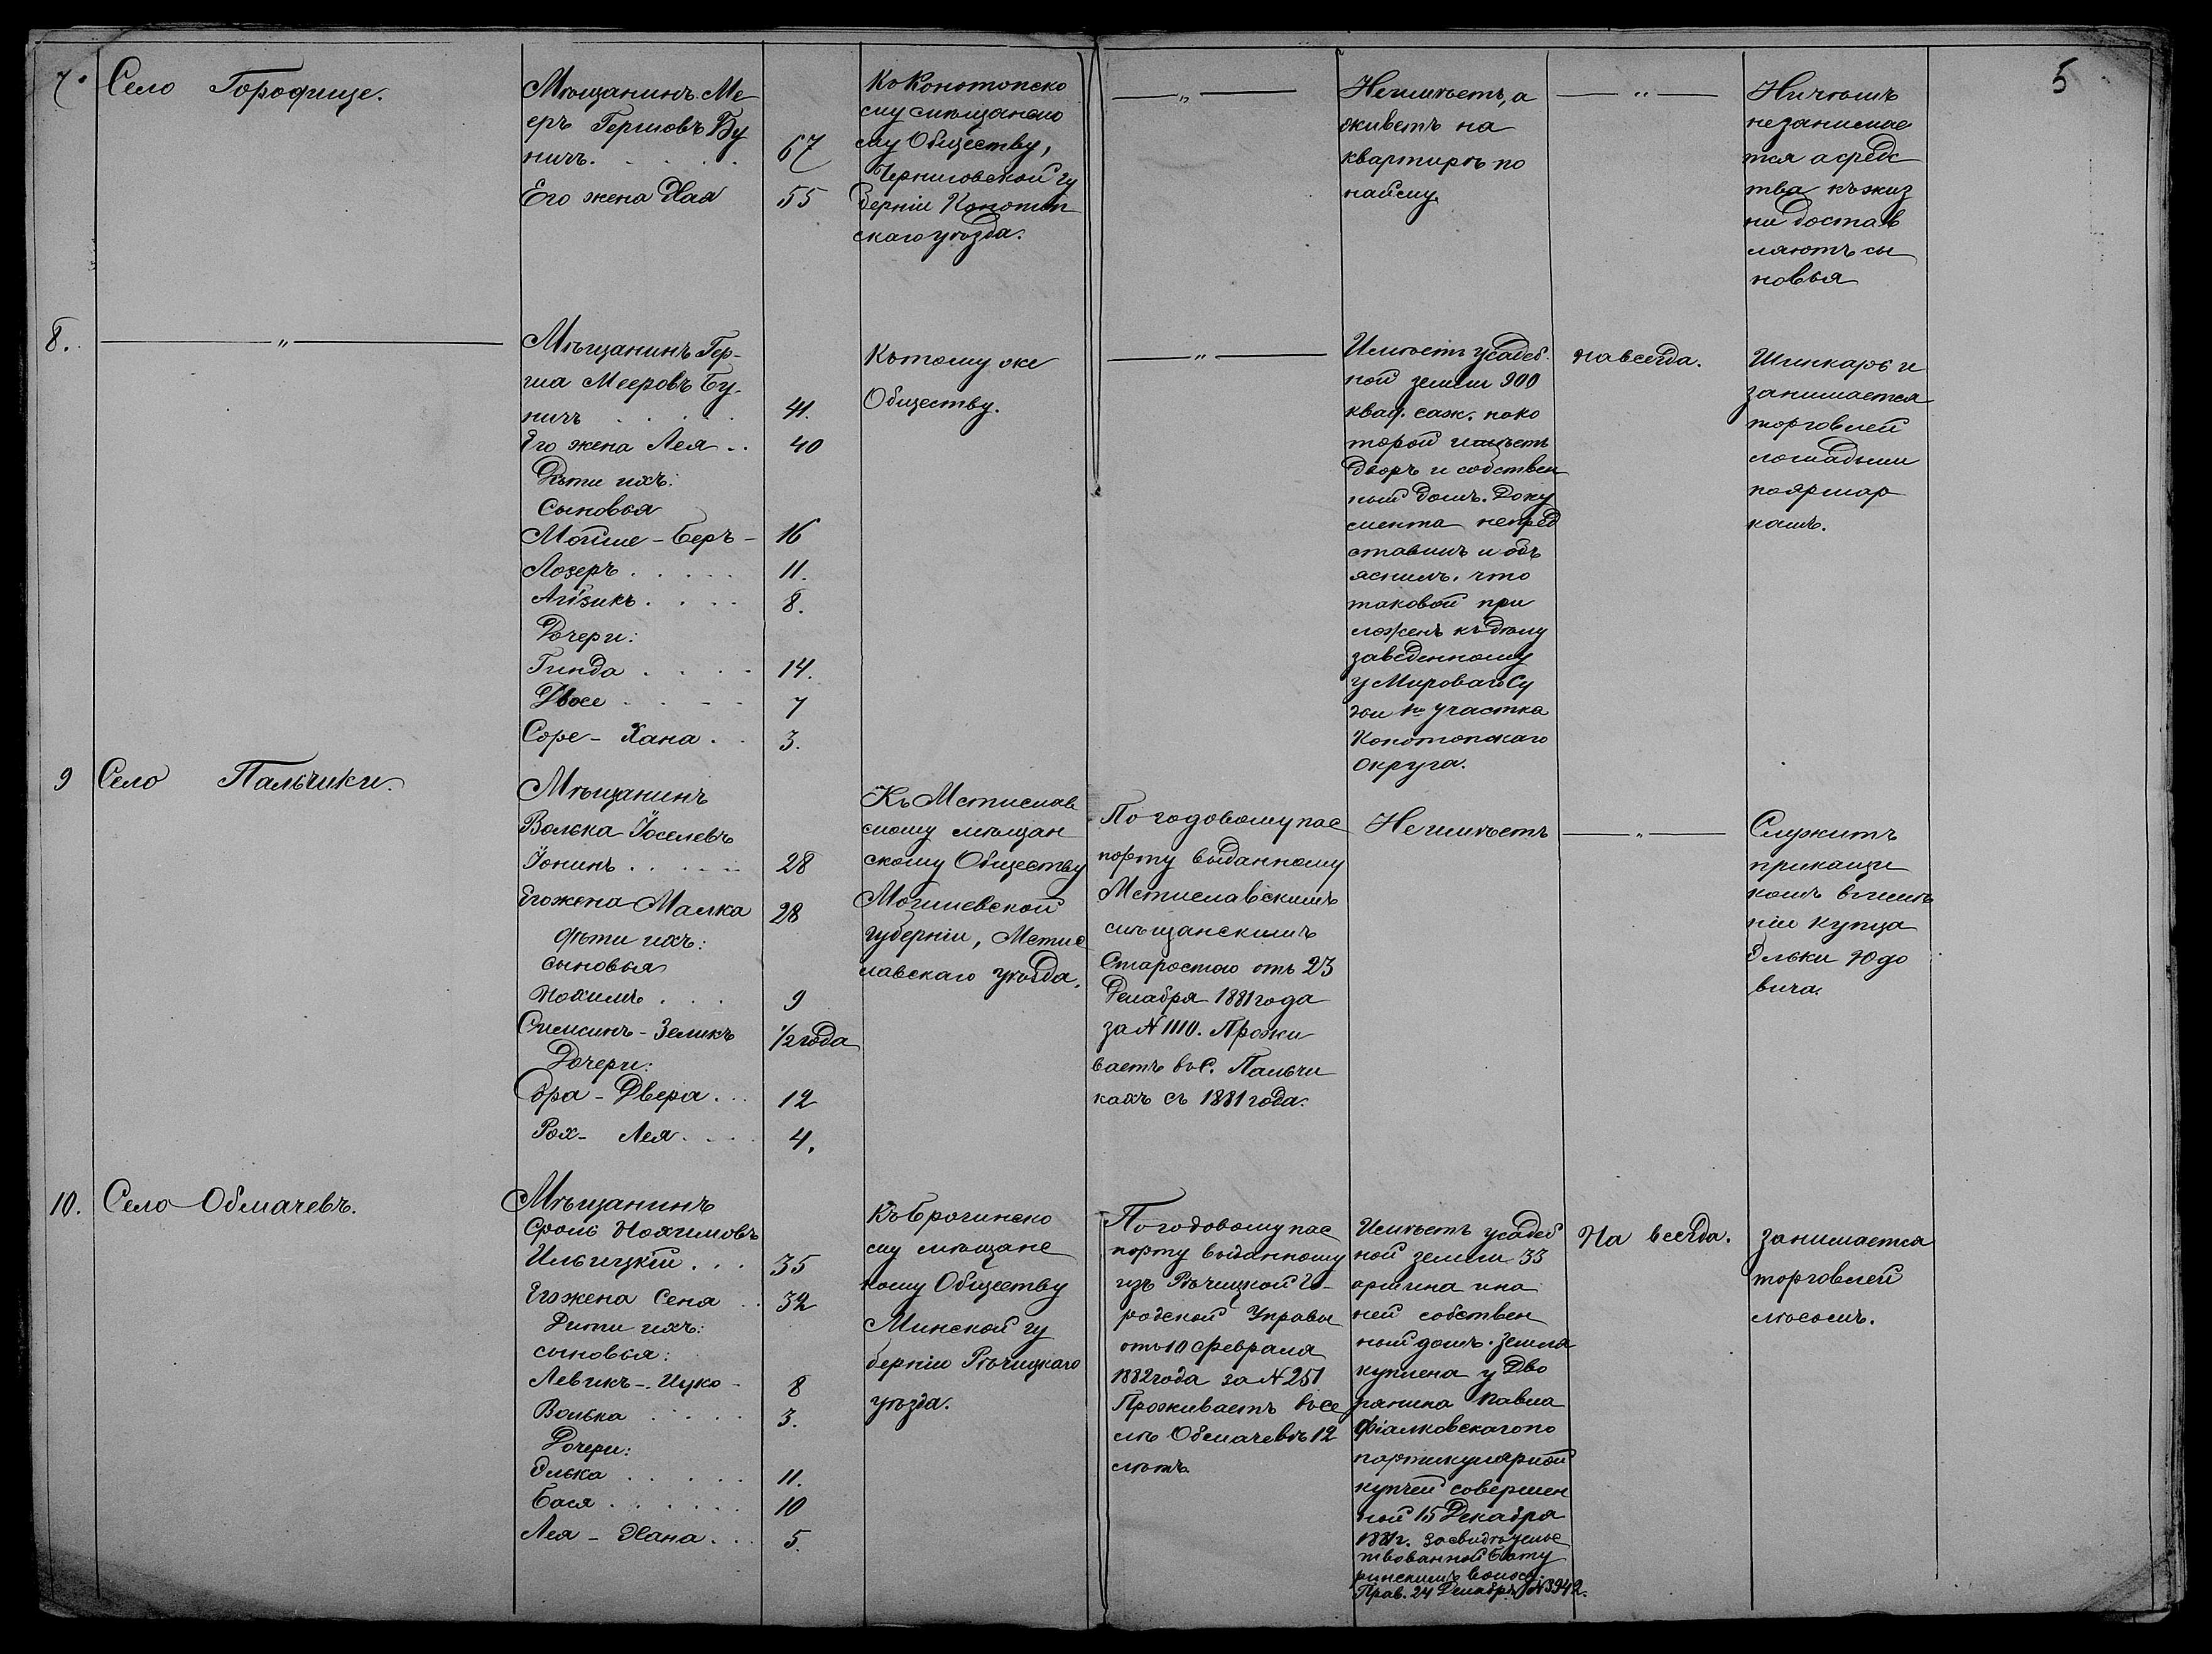 5
7. Село Городище.
Мѣщанинъ Ме
еръ Гершовъ Бу
ничъ. . . . . 67
Его жена Хая 55
Къ Конотопско
му мѣщанско
му Обществу,
Черниговской гу
берніи Конотоп
скаго уѣзда.
— " —
Неимѣетъ, а
живетъ на
квартирѣ по
найму.
— " —
Ничѣмъ
незанимае
тся а средс
тва къ жиз
ни достав
ляютъ сы
новья
8. — " —
Мѣщанинъ Гер-
ша Мееровъ Бу-
ничъ . . . . . 41.
Его жена Лея . . 40
Дѣти ихъ:
Сыновья
Мойше - Беръ - 16
Лозеръ . . . . . 11.
Айзикъ . . . . 8.
Дочери:
Гинда . . . . 14.
Двосе . . - - 7
Соре - Хана . . 3.
Къ тому же
Обществу.
— " —
Имѣетъ усадеб
ной земли 900
квад. саж. на ко
торой имѣетъ
дворъ и собствен
ный домъ. Доку
мента непред
ставилъ и объ
яснилъ, что
таковой при
ложенъ къ дѣлу
заведенному
у Мироваго Су
дьи 1го участка
Конотопскаго
Округа.
навсегда.
Шинкарь и
занимается
торговлей
лошадьми
по ярмар
камъ.
9 Село Пальчики.
Мѣщанинъ
Волька Іоселевъ
Іонинъ . . . . . . 28
Его жена Малка 28
дѣти ихъ:
сыновья
Нохимъ . . . . 9
Симсинъ - Зеликъ 1/2 года
Дочери:
Сора - Двера . . . 12
Рох - Лея . . . . 4.
Къ Мстислав
скому мѣщан
скому Обществу
Могилевской
губерніи, Мстис
лавскаго уѣзда.
По годовому пас
порту выданному
Мстиславскимъ
мѣщанскимъ
Старостою отъ 23
Декабря 1881 года
за № 1110. Прожи
ваетъ въ с. Пальчи
кахъ съ 1881 года.
Не имѣетъ
— " —
Служитъ
прикащи
комъ в имѣ
ніи купца
Ольки Юдо
вича.
10. Село Обмачевъ.
Мѣщанинъ
Сроль Нохимовъ
Ильицкій . . . 35
Его жена Сеня . . 32
Дѣти ихъ:
сыновья:
Левикъ - Ицко - 8
Волька . . . . . 3.
Дочери:
Олька . . . . . . 11.
Бася . . . . . . 10
Лея - Хана . . . 5.
Къ Брогинско
му мѣщанс
кому Обществу
Минской гу
берніи Рѣчицкаго
уѣзда.
По годовому пас
порту выданному
изъ Рѣчицкой Го-
родской Управы
отъ 10 февраля
1882 года за № 251
Проживаетъ въ се
лѣ Обмачевѣ 12
лѣтъ.
Имѣетъ усадеб
ной земли 33
аршина и на
ней собствен
ный домъ. Земля
куплена у Дво
рянина Павла
Фіалковскаго по
партикулярной
купчей совершен
ной 15 Декабря
1881 г. засвидѣтельс
твованной Бату
ринскимъ волос.
Прав. 24 Декабря № 3942.
На всегда.
занимается
торговлей
лѣсомъ.